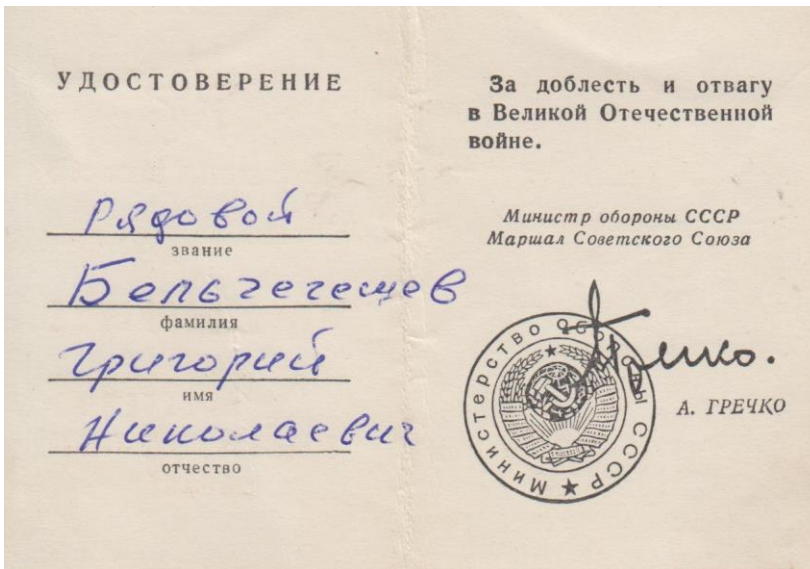 УДОСТОВЕРЕНИЕ
Рядовой
звание
Бельчегешев
фамилия
Григорий
имя
Николаевич
отчество
За доблесть и отвагу
в Великой Отечественной
войне.
Министр обороны СССР
Маршал Советского Союза
Министерство Обороны СССР
Гречко.
А. ГРЕЧКО